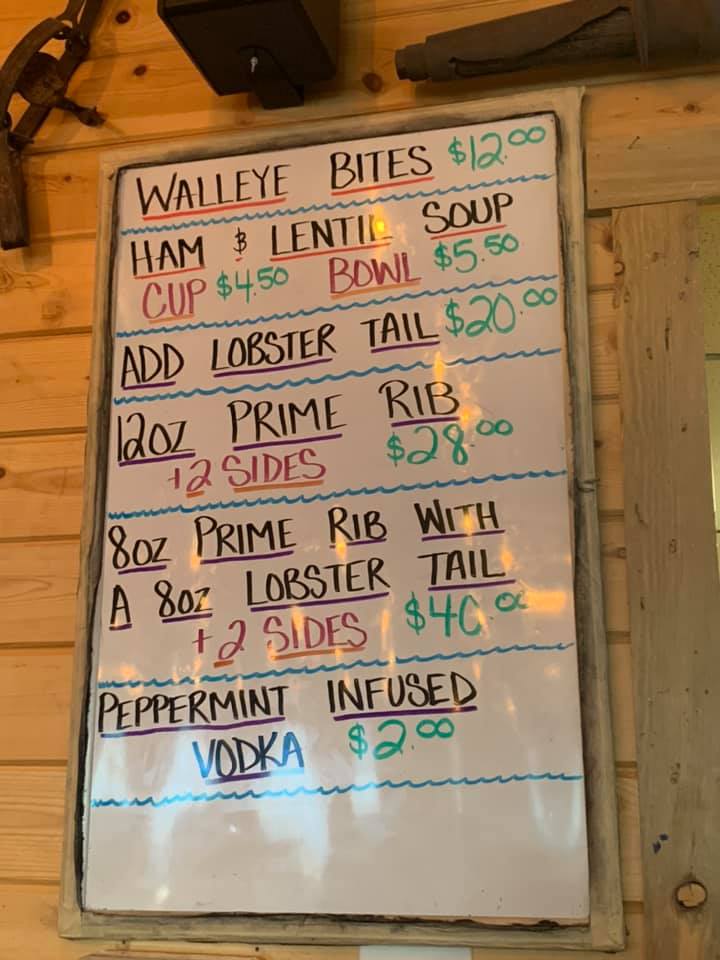 WALLEYE BITES $12.00
HAM & LENTIL SOUP
CUP $4.50 BOWL $5.50
ADD LOBSTER TAIL $20.00
12oz PRIME RIB
+2 SIDES $28.00
8oz PRIME RIB WITH
A 8oz LOBSTER TAIL
+2 SIDES $40.00
PEPPERMINT INFUSED
VODKA $2.00